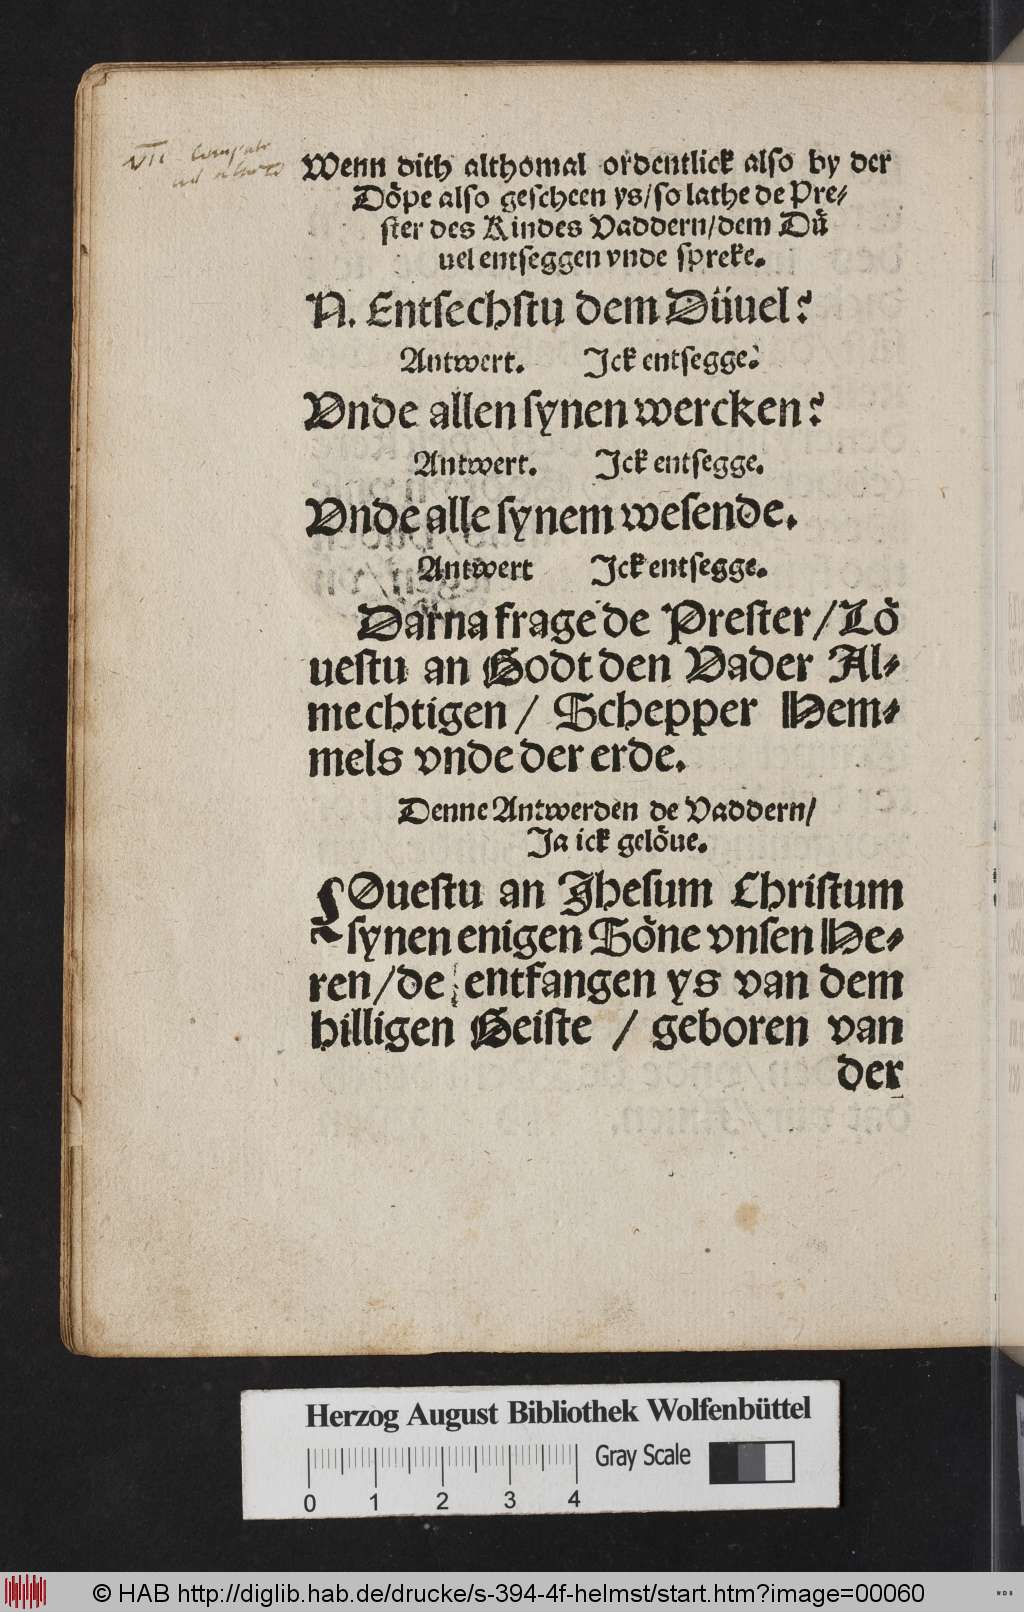 VII
Wenn dith althomal ordentlick also by der
Döpe also gescheen ys/ so lathe de Pre⸗
ster des Kindes Vaddern/ dem Dü
uel entseggen vnde spreke.
N. Entsechstu dem Düuel?
Antwert. Ick entsegge.
Vnde allen synen wercken?
Antwert. Ick entsegge.
Vnde alle synem wesende.
Antwert Ick entsegge.
Darna frage de Prester/ Lö
uestu an Godt den Vader Al⸗
mechtigen/ Schepper Hem⸗
mels vnde der erde.
Denne Antwerden de Vaddern/
Ja ick gelöue.
LOuestu an Jhesum Christum
synen enigen Söne vnsen He⸗
ren/ de entfangen ys van dem
hilligen Geiste / geboren van
der
Herzog August Bibliothek Wolfenbüttel
Gray Scale
0 1 2 3 4
© HAB http://diglib.hab.de/drucke/s-394-4f-helmst/start.htm?image=00060